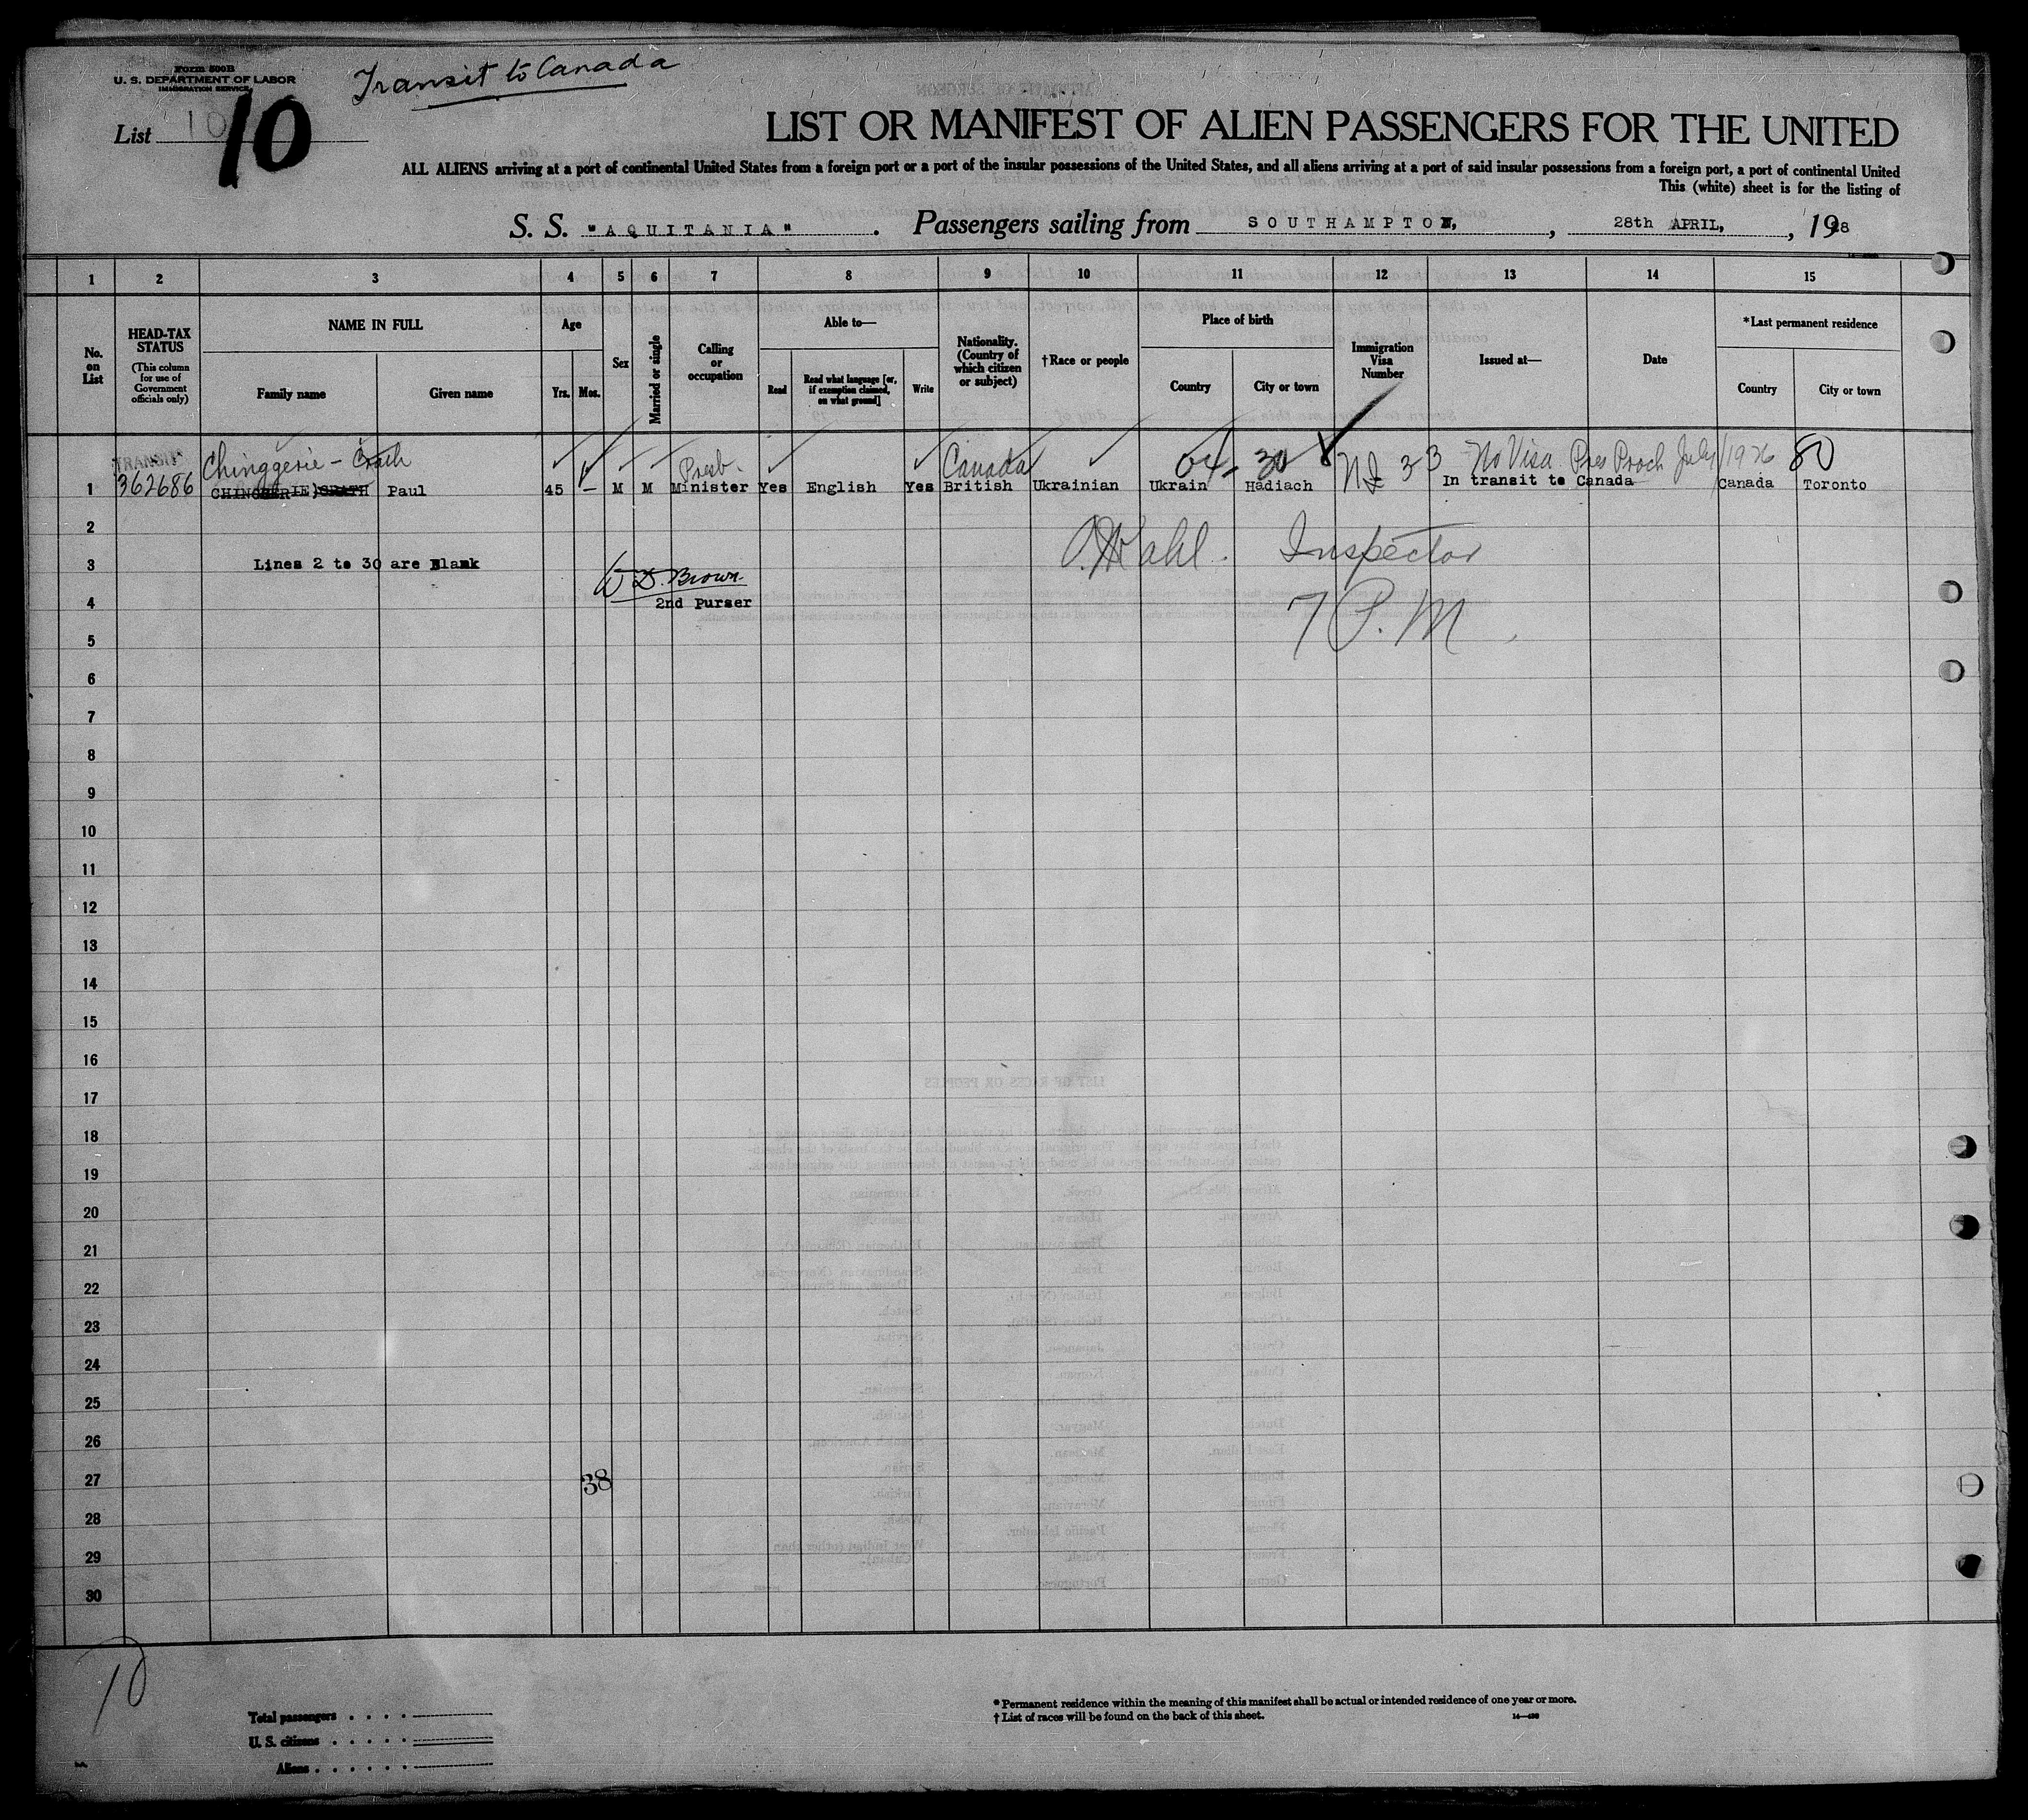 Form 500B
U. S. DEPARTMENT OF LABOR
IMMIGRATION SERVICE
Transit to Canada
List 10 10
LIST OR MANIFEST OF ALIEN PASSENGERS FOR THE UNITED
ALL ALIENS arriving at a port of continental United States from a foreign port or a port of the insular possessions of the United States, and all aliens arriving at a port of said insular possessions from a foreign port, a port of continental United
This (white) sheet is for the listing of
S. S. "AQUITANIA" . Passengers sailing from SOUTHAMPTON, , 28th APRIL, , 1928
1 2 3 4 5 6 7 8 9 10 11 12 13 14 15
No. on List
HEAD-TAX STATUS
(This column for use of Government officials only)
NAME IN FULL
Family name
Given name
Age
Yrs. Mos.
Sex
Married or single
Calling or occupation
Able to—
Read
Read what language [or, if exemption claimed, on what ground]
Write
Nationality. (Country of which citizen or subject)
†Race or people
Place of birth
Country
City or town
Immigration Visa Number
Issued at—
Date
*Last permanent residence
Country
City or town
TRANSIT Chinggerie - Crath Presb. Canada 04 - 30 No Visa Pres Proch July/1926 80
1 362686 Paul 45 — M M Minister Yes English Yes British Ukrainian Ukrain Hadiach 33 In transit to Canada Canada Toronto
2
Wahl. Inspector
3 Lines 2 to 30 are Blank
W D. Brown
4 2nd Purser
7 P. M
5
6
7
8
9
10
11
12
13
14
15
16
17
18
19
20
21
22
23
24
25
26
27 38
28
29
30
10
Total passengers
U. S. citizens
Aliens
* Permanent residence within the meaning of this manifest shall be actual or intended residence of one year or more.
† List of races will be found on the back of this sheet.